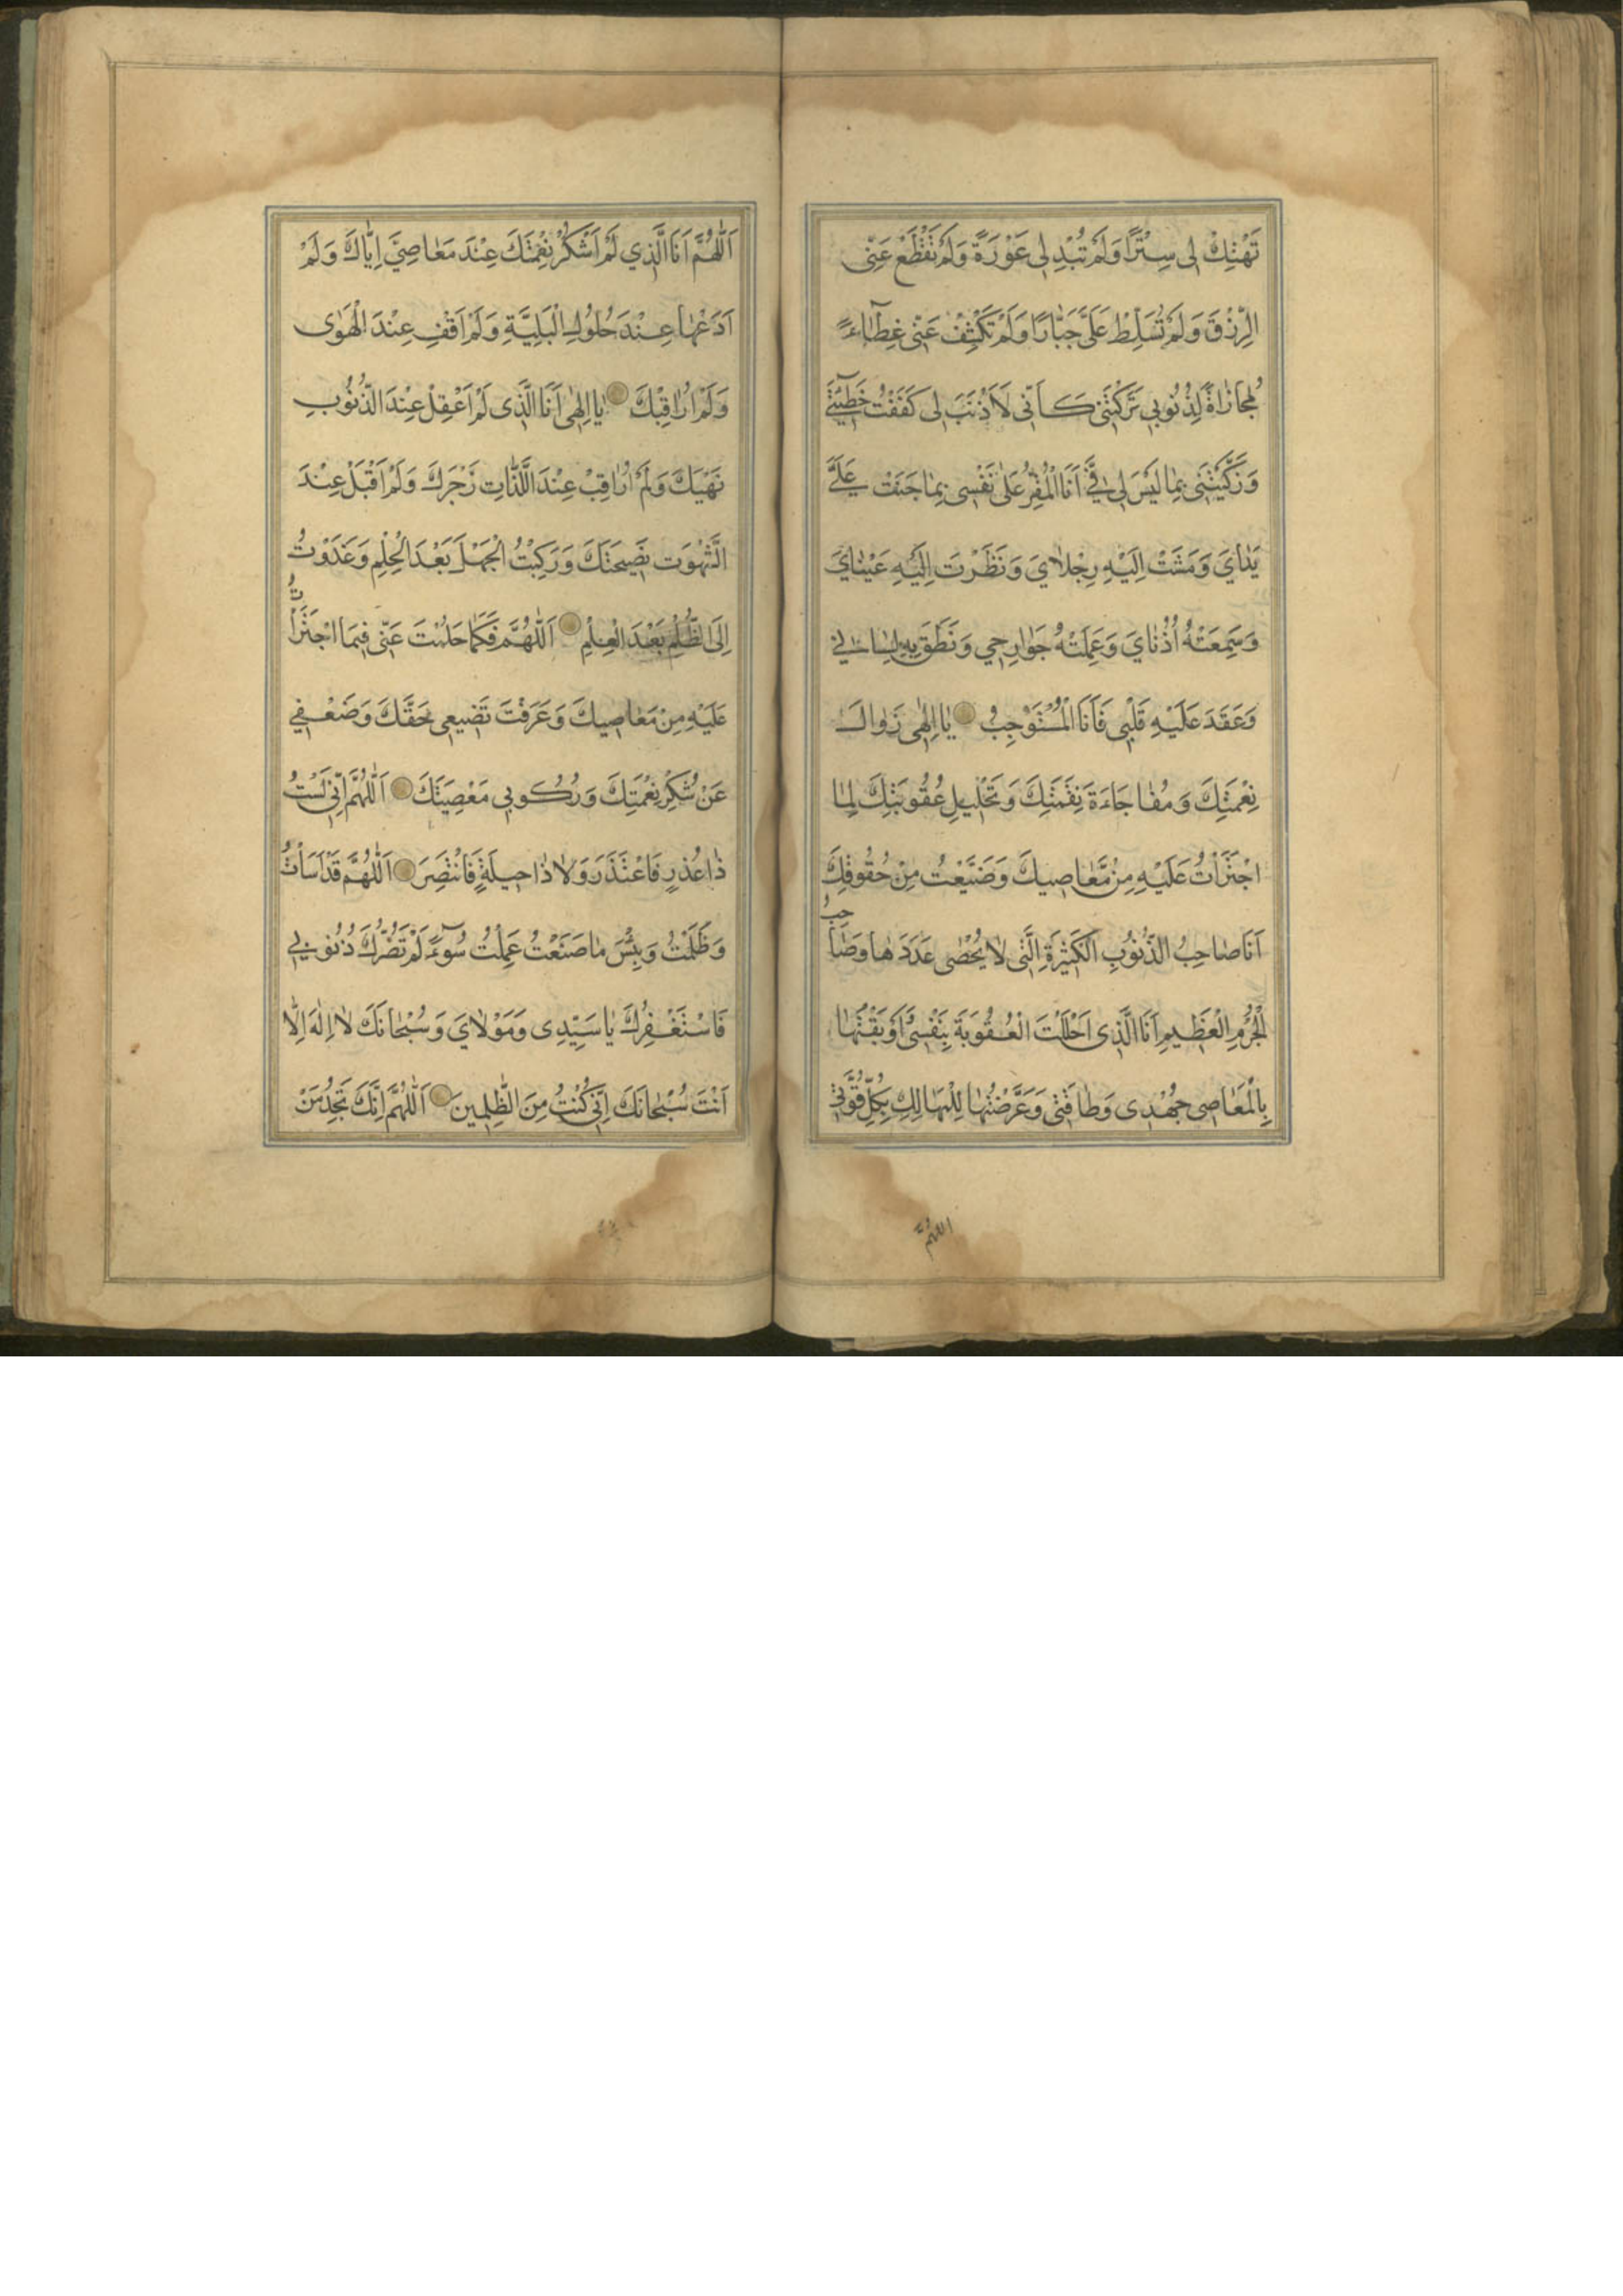 تَهْتِكْ لِى سِتْرًا وَلَمْ تُبْدِ لِى عَوْرَةً وَلَمْ تَقْطَعْ عَنِّى
الرِّزْقَ وَلَمْ تُسَلِّطْ عَلَىَّ جَبَّارًا وَلَمْ تَكْشِفْ عَنِّى غِطَاءً
مُجَازَاةً لِذُنُوبِي تَرَكْتَنِى كَاَنِّى لَا ذَنْبَ لِى كَفَفْتَ خَطِيئَتِى
وَزَكَّيْتَنِى بِمَا لَيْسَ لِى فِىَّ اَنَا الْمُقِرُّ عَلٰى نَفْسِى بِمَا جَنَتْ عَلَىَّ
يَدَايَ وَمَشَتْ اِلَيْهِ رِجْلَايَ وَنَظَرْتَ اِلَيْهِ عَيْنَايَ
وَسَمِعَتْهُ اُذُنَايَ وَعَمِلَتْهُ جَوَارِحِي وَنَطَقَ بِهِ لِسَانِي
وَعَقَدَ عَلَيْهِ قَلْبِى فَاَنَا الْمُسْتَوْجِبُ يَا اِلٰهِى زَوَالَ
نِعْمَتِكَ وَمُفَاجَاءَةَ نِقْمَتِكَ وَتَحْلِيلِ عُقُوبَتِكَ لِمَا
اجْتَرَاْتُ عَلَيْهِ مِنْ مَعَاصِيكَ وَضَيَّعْتُ مِنْ حُقُوقِكَ
اَنَا صَاحِبُ الذُّنُوبِ الْكَثِيْرَةِ الَّتِى لَا يُحْصٰى عَدَدَهَا وَصَاحِبُ
الْجُرْمِ الْعَظِيمِ اَنَا الَّذِى اَحْلَلْتَ الْعُقُوبَةَ بِنَفْسِى وَاَوْبَقْتُهَا
بِالْمَعَاصِى جُهْدِى وَطَاقَتِى وَعَرَّضْتُهَا لِلْمَهَالِكِ بِكُلِّ قُوَّتِى
اللهم
اَللّٰهُمَّ اَنَا الَّذِي لَمْ اَشْكُرْ نِعْمَتَكَ عِنْدَ مَعَاصِيَّ اِيَّاكَ وَلَمْ
اَدَعْهَا عِنْدَ حُلُولِ الْبَلِيَّةِ وَلَمْ اَقِفْ عِنْدَ الْهَوٰى
وَلَمْ اُرَاقِبْكَ يَا اِلٰهِى اَنَا الَّذِى لَمْ اَعْقِلْ عِنْدَ الذُّنُوبِ
نَهْيَكَ وَلَمْ اُرَاقِبْ عِنْدَ اللَّذَّاتِ زَجْرَكَ وَلَمْ اَقْبَلْ عِنْدَ
الشَّهْوَتِ نَصِيحَتَكَ وَرَكِبْتُ الْجَهْلَ بَعْدَ الْحِلْمِ وَغَدَوْتُ
اِلَى الظُّلْمِ بَعْدَ الْعِلْمِ اَللّٰهُمَّ فَكَمَا حَلُمْتَ عَنِّى فِيمَا اجْتَرَاْتُ
عَلَيْهِ مِنْ مَعَاصِيكَ وَعَرَفْتَ تَضْيِيعِى حَقَّكَ وَضَعْفِي
عَنْ شُكْرِ نِعْمَتِكَ وَرُكُوبِي مَعْصِيَتَكَ اَللّٰهُمَّ اِنِّى لَسْتُ
ذَا عُذْرٍ فَاَعْتَذِرَ وَلَا ذَا حِيلَةٍ فَاَنْتَصِرَ اَللّٰهُمَّ قَدْ اَسَاْتُ
وَظَلَمْتُ وَبِئْسَ مَا صَنَعْتُ عَمِلْتُ سُوءً لَمْ تَضُرَّكَ ذُنُوبِي
فَاَسْتَغْفِرُكَ يَا سَيِّدِى وَمَوْلَايَ وَسُبْحَانَكَ لَا اِلٰهَ اِلَّا
اَنْتَ سُبْحَانَكَ اِنِّى كُنْتُ مِنَ الظّٰلِمِينَ اَللّٰهُمَّ اِنَّكَ تَجِدُ مَنْ